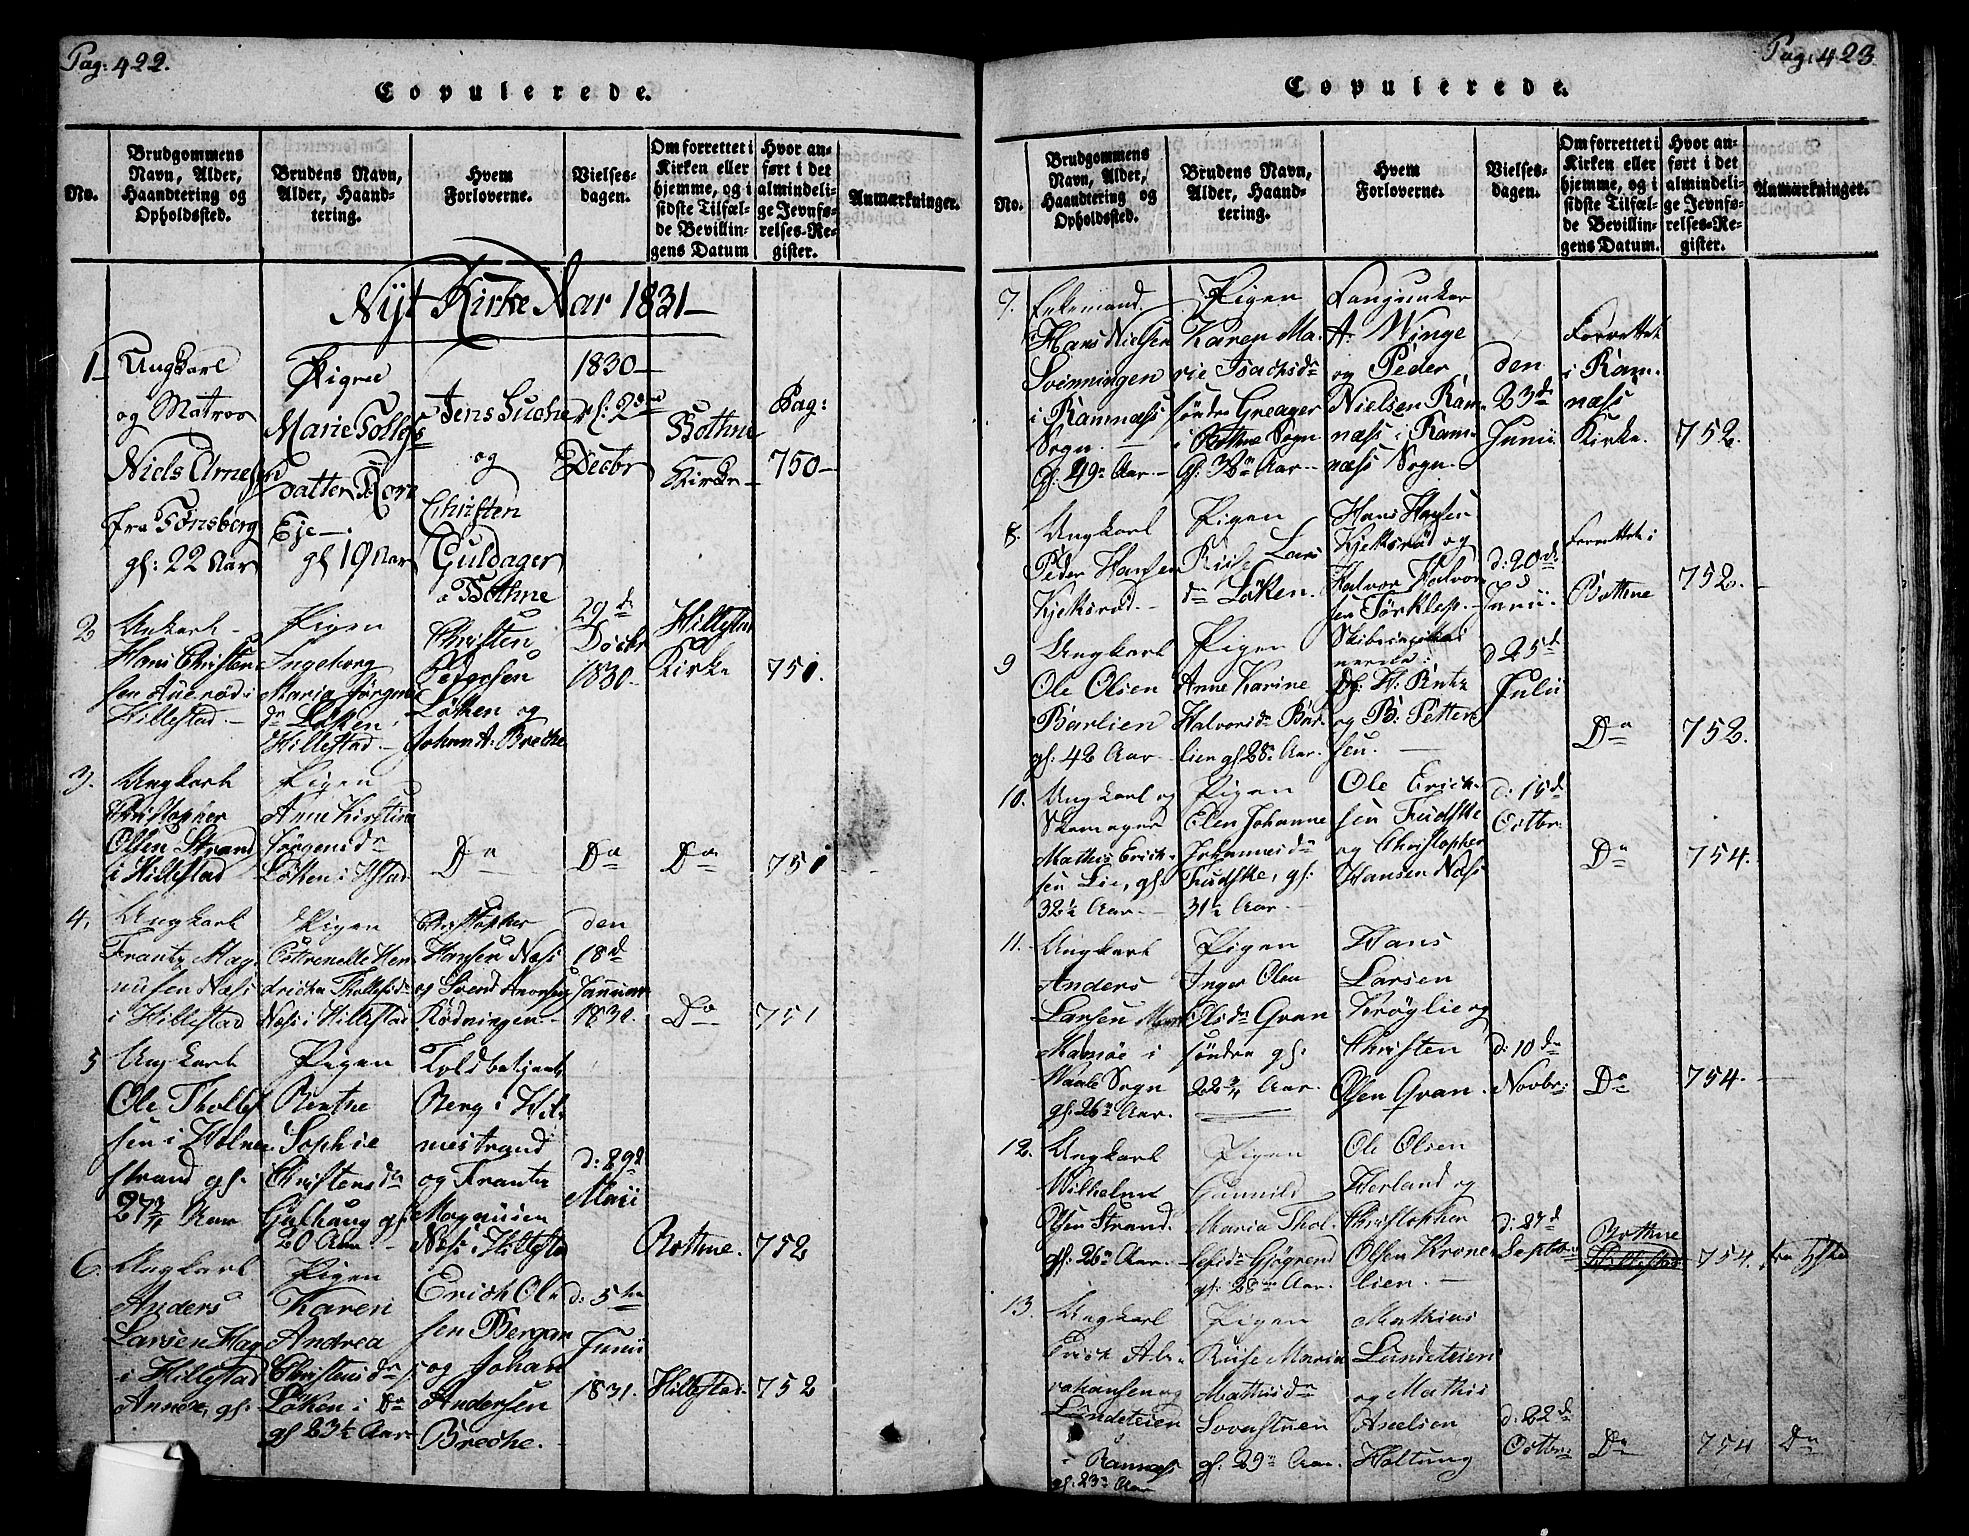 Pag: 422.
Copulerede.
No.
Brudgommens
Navn, Alder,
Haandtering og
Opholdssted.
Brudens Navn,
Alder, Haand-
tering.
Hvem
Forloverne.
Vielses-
dagen.
Om forrettet i
Kirken eller
hjemme, og i
sidste Tilfæl-
de Bevillin-
gens Datum
Hvor an-
ført i det
almindeli-
ge Jevnfø-
relses-Re-
gister.
Anmærkninger.
Nyt Kirke Aar 1831
1
Ungkarl
og Matros
Niels Arnesen
fra Tønsberg
gl: 22 Aar
Pigen
Marie Tollefs
datter
Eje
gl 19 Aar
og
Christen
Guldager
Bothne
1830
Decbr
Bothne
Kirke
Pag:
750
2
Unkarl
Hans Christen
sen Auerød i
Hillestad
Pigen
Ingeborg
Maria Jørgens
dr Løken i
Hillestad
Christen
Pedersen
Løken og
Johan A: Breche
29 d
Decbr
1830
Hillestad
Kirke
751.
3.
Ungkarl
Christopher
Olsen Strand
i Hillestad
Pigen
Anne Kirstine
Jørgensdr
Løken i Hstad
Do
Do
Do
751
4.
Ungkarl
Frantz Mag
nusen Næs
i Hillestad
Pigen
Hen
dricha Thollefsdr
Næs i Hillestad
Christopher
Hansen Næs
og Svend
Rødningen
den
18d
Januar
1830.
Do
751
5
Ungkarl
Ole Thollef
sen i Holme
strand gl.
27¾ Aar
Pigen
Berthe
Sophie
Christensdr
gl:
20 Aar
Toldbetjent
Berg i Hol
mestrand
og Frantz
Magnusen
Næs i Hillestad
d: 29d
Maii
Bothne.
752
6.
Ungkarl
Anders
Larsen Hag
i Hillestad
Annex, gl:
Pigen
Karen
Andrea
Christensdr
Løken i Do
gl 23½ Aar
Erich Ol
sen Bergan
og Johan
Andersen
Breche.
d: 5te
Junii
1831.
Hillestad
752
Pag: 423
Copulerede.
No.
Brudgommens
Navn, Alder,
Haandtering og
Opholdssted.
Brudens Navn,
Alder, Haand-
tering.
Hvem
Forloverne.
Vielses-
dagen.
Om forrettet i
Kirken eller
hjemme, og i
sidste Tilfæl-
de Bevillin-
gens Datum.
Hvor an-
ført i det
almindeli-
ge Jevnfø-
relses-Re-
gister.
Anmærkninger.
7.
Enkemand
Hans Nielsen
Svinningen
i Ramnæss
Sogn.
gl. 49 Aar
Pigen
Karen Ma
rie Isachsdr
søndre Greager
i Bothne Sogn
Aar
Fanejunker
A. Winge
og Peder
Nielsen Ram
næss i Ram
næss Sogn.
den
23d
Junii
Forrettet
i Ram
næss
Kirke.
752.
8.
Ungkarl
Peder Hansen
Kjeksrød
Pigen
Lars
dr Løken.
Hans Hansen
Kjeksrød og
Halvor Halvor
sen
d: 20d
Junii
Forrettet i
Bothne
752.
9
Ungkarl
Ole Olsen
Barlien
gl: 42 Aar
Pigen
Anne Karine
Halvorsdr Bar
lien gl 28 Aar.
og B: Petter
sen.
d 25d
Julii
Do
752.
10.
Ungkarl og
Skomager
Mathis Erich
sen Lie, gl:
32½ Aar.
Pigen
Elen Johanne
Johannesdr
gl:
31½ Aar
Ole Erich
sen
og Christopher
Hansen Næs
d: 15d
Octbr:
Do
754.
11.
Ungkarl
Anders
Larsen
i
Sogn
gl: 26 Aar.
Pigen
Inger Olea
Olsdr Gran
søndre gl:
22¾ Aar.
Hans
Larsen
Krøglie og
Christen
Olsen Gran.
d: 10d
Novbr:
Do
754.
12.
Ungkarl
Wilhelm
Olsen Strand.
gl: 26 Aar.
Pigen
Gunnild
Maria Thol
lefsdr
gl: 28 Aar.
Ole Olsen
Herland og
Christopher
Olsen Krone
lien.
d: 27d
Septbr
Bothne
Hillestad
754.
13.
Ungkarl
Erich Ab
rahamsen
Lindeteien
i Ramnæs
gl: 23 Aar
Pigen
Maria
Mathisdr
gl: 29 Aar.
Mathias
Lindeteien
og Mathis
Axelsen
Holtung
d: 22d
Octbr:
Do
754
Do